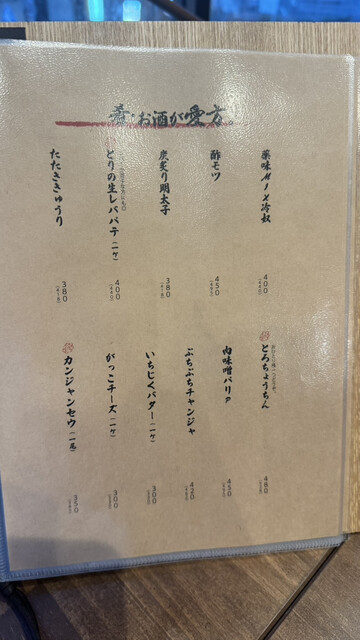 お酒が愛方。
薬味MIX冷奴
400
酢モツ
450
炭炙り明太子
380
とりの生レバパテ(一ケ)
400
たたききゅうり
380
とろちょうちん
480
肉味噌パリP
450
ぷちぷちチャンジャ
430
いちじくバター(一ケ)
300
がっこチーズ(一ケ)
300
カンジャンセウ(一尾)
350